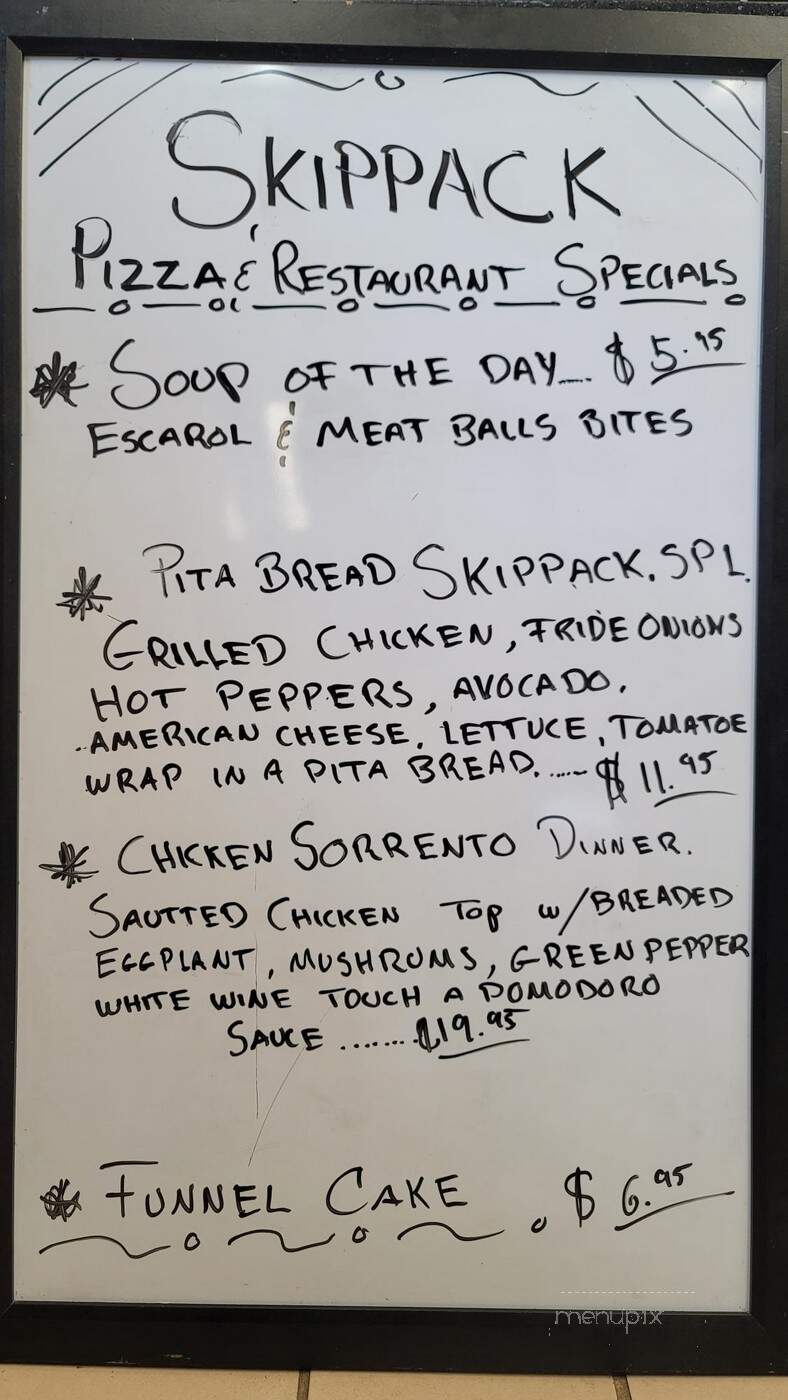 SKIPPACK
PIZZA & RESTAURANT SPECIALS
* SOUP OF THE DAY.... $ 5.95
ESCAROL & MEAT BALLS BITES
* PITA BREAD SKIPPACK. SPL.
GRILLED CHICKEN, FRIDE ONIONS
HOT PEPPERS, AVOCADO.
AMERICAN CHEESE, LETTUCE, TOMATOE
WRAP IN A PITA BREAD...... $ 11.95
* CHICKEN SORRENTO DINNER.
SAUTTED CHICKEN TOP W/BREADED
EGGPLANT, MUSHRUMS, GREEN PEPPER
WHITE WINE TOUCH A POMODORO
SAUCE ....... $19.95
* FUNNEL CAKE . $ 6.95
menupix